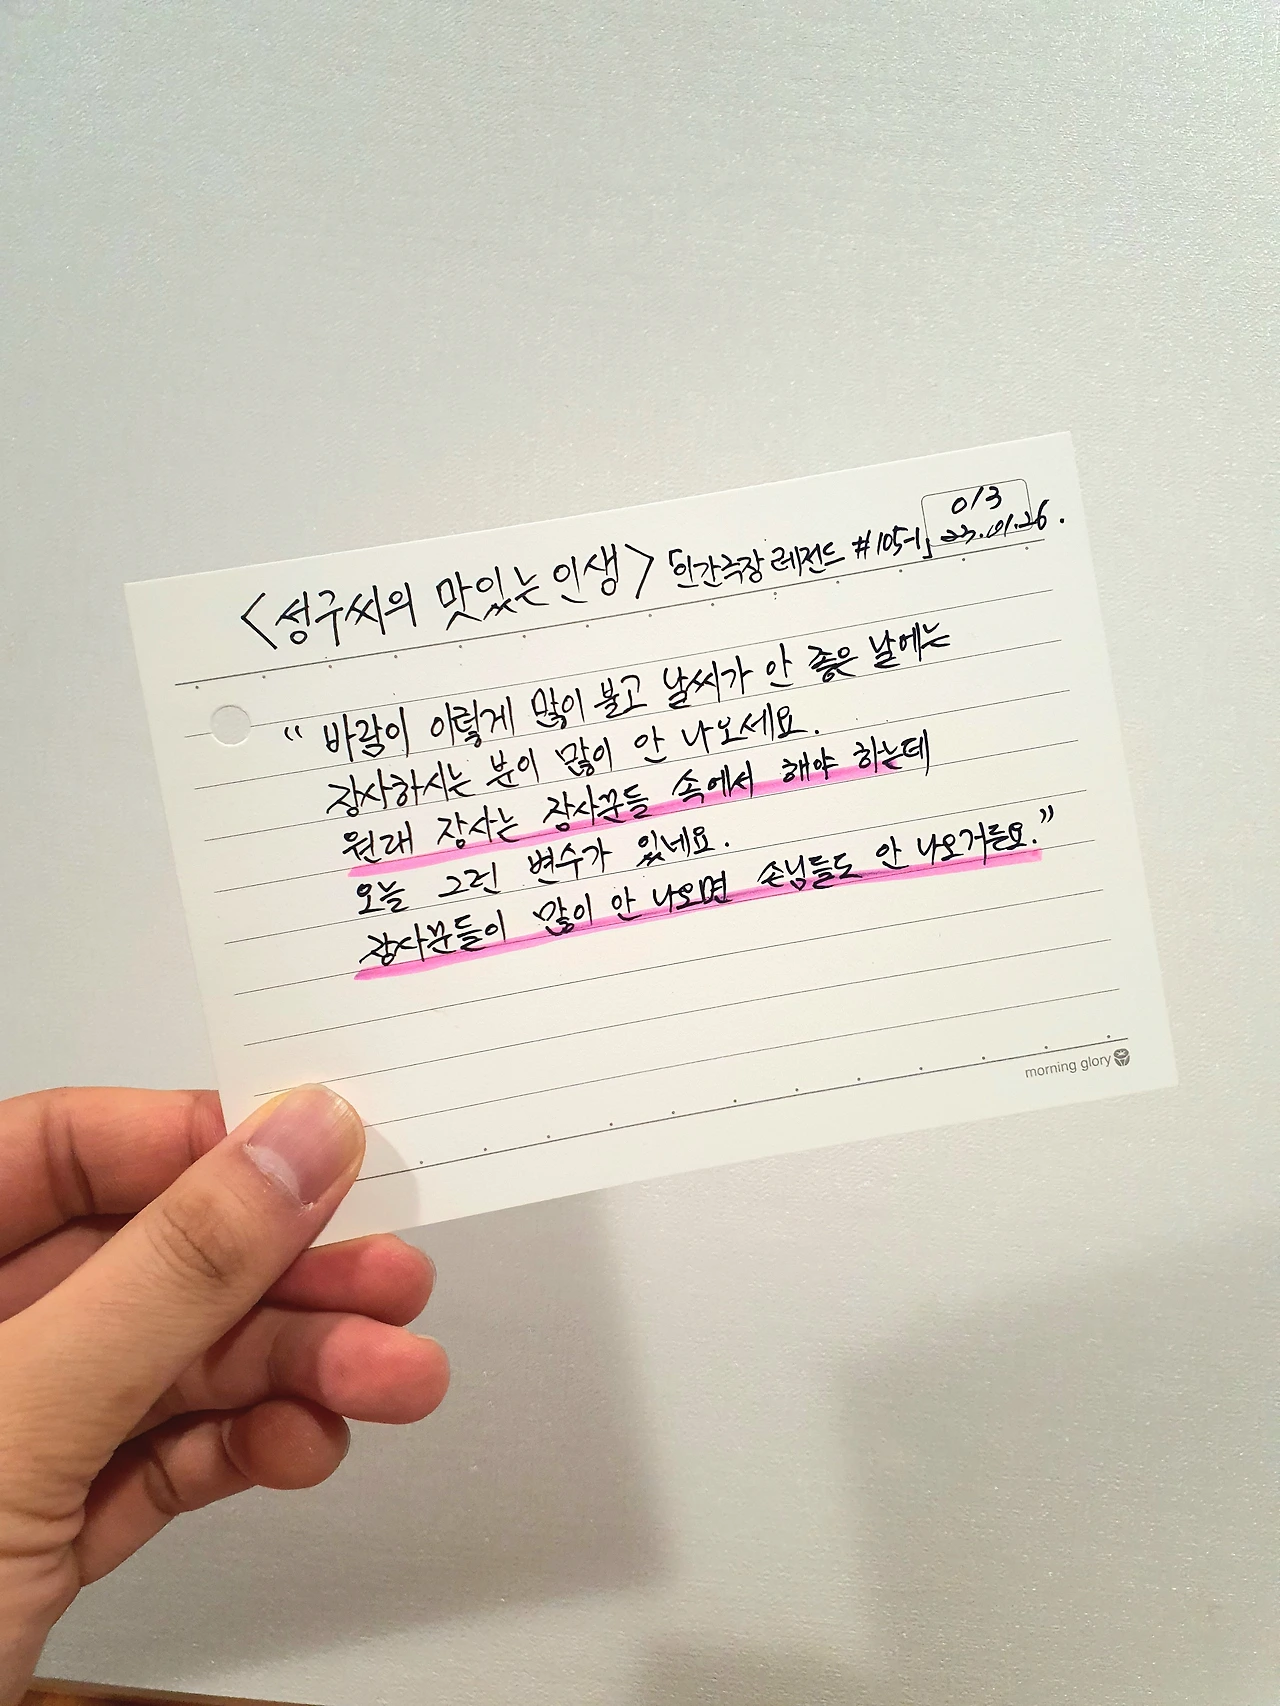 013
<성구씨의 맛있는 인생> 「인간극장 레전드 #105-1」 23.01.26.
“ 바람이 이렇게 많이 불고 날씨가 안 좋은 날에는
장사하시는 분이 많이 안 나오세요.
원래 장사는 장사꾼들 속에서 해야 하는데
오늘 그런 변수가 있네요.
장사꾼들이 많이 안 나오면 손님들도 안 나오거든요.”
morning glory